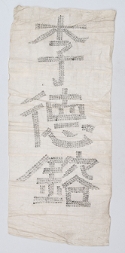 李德鎔